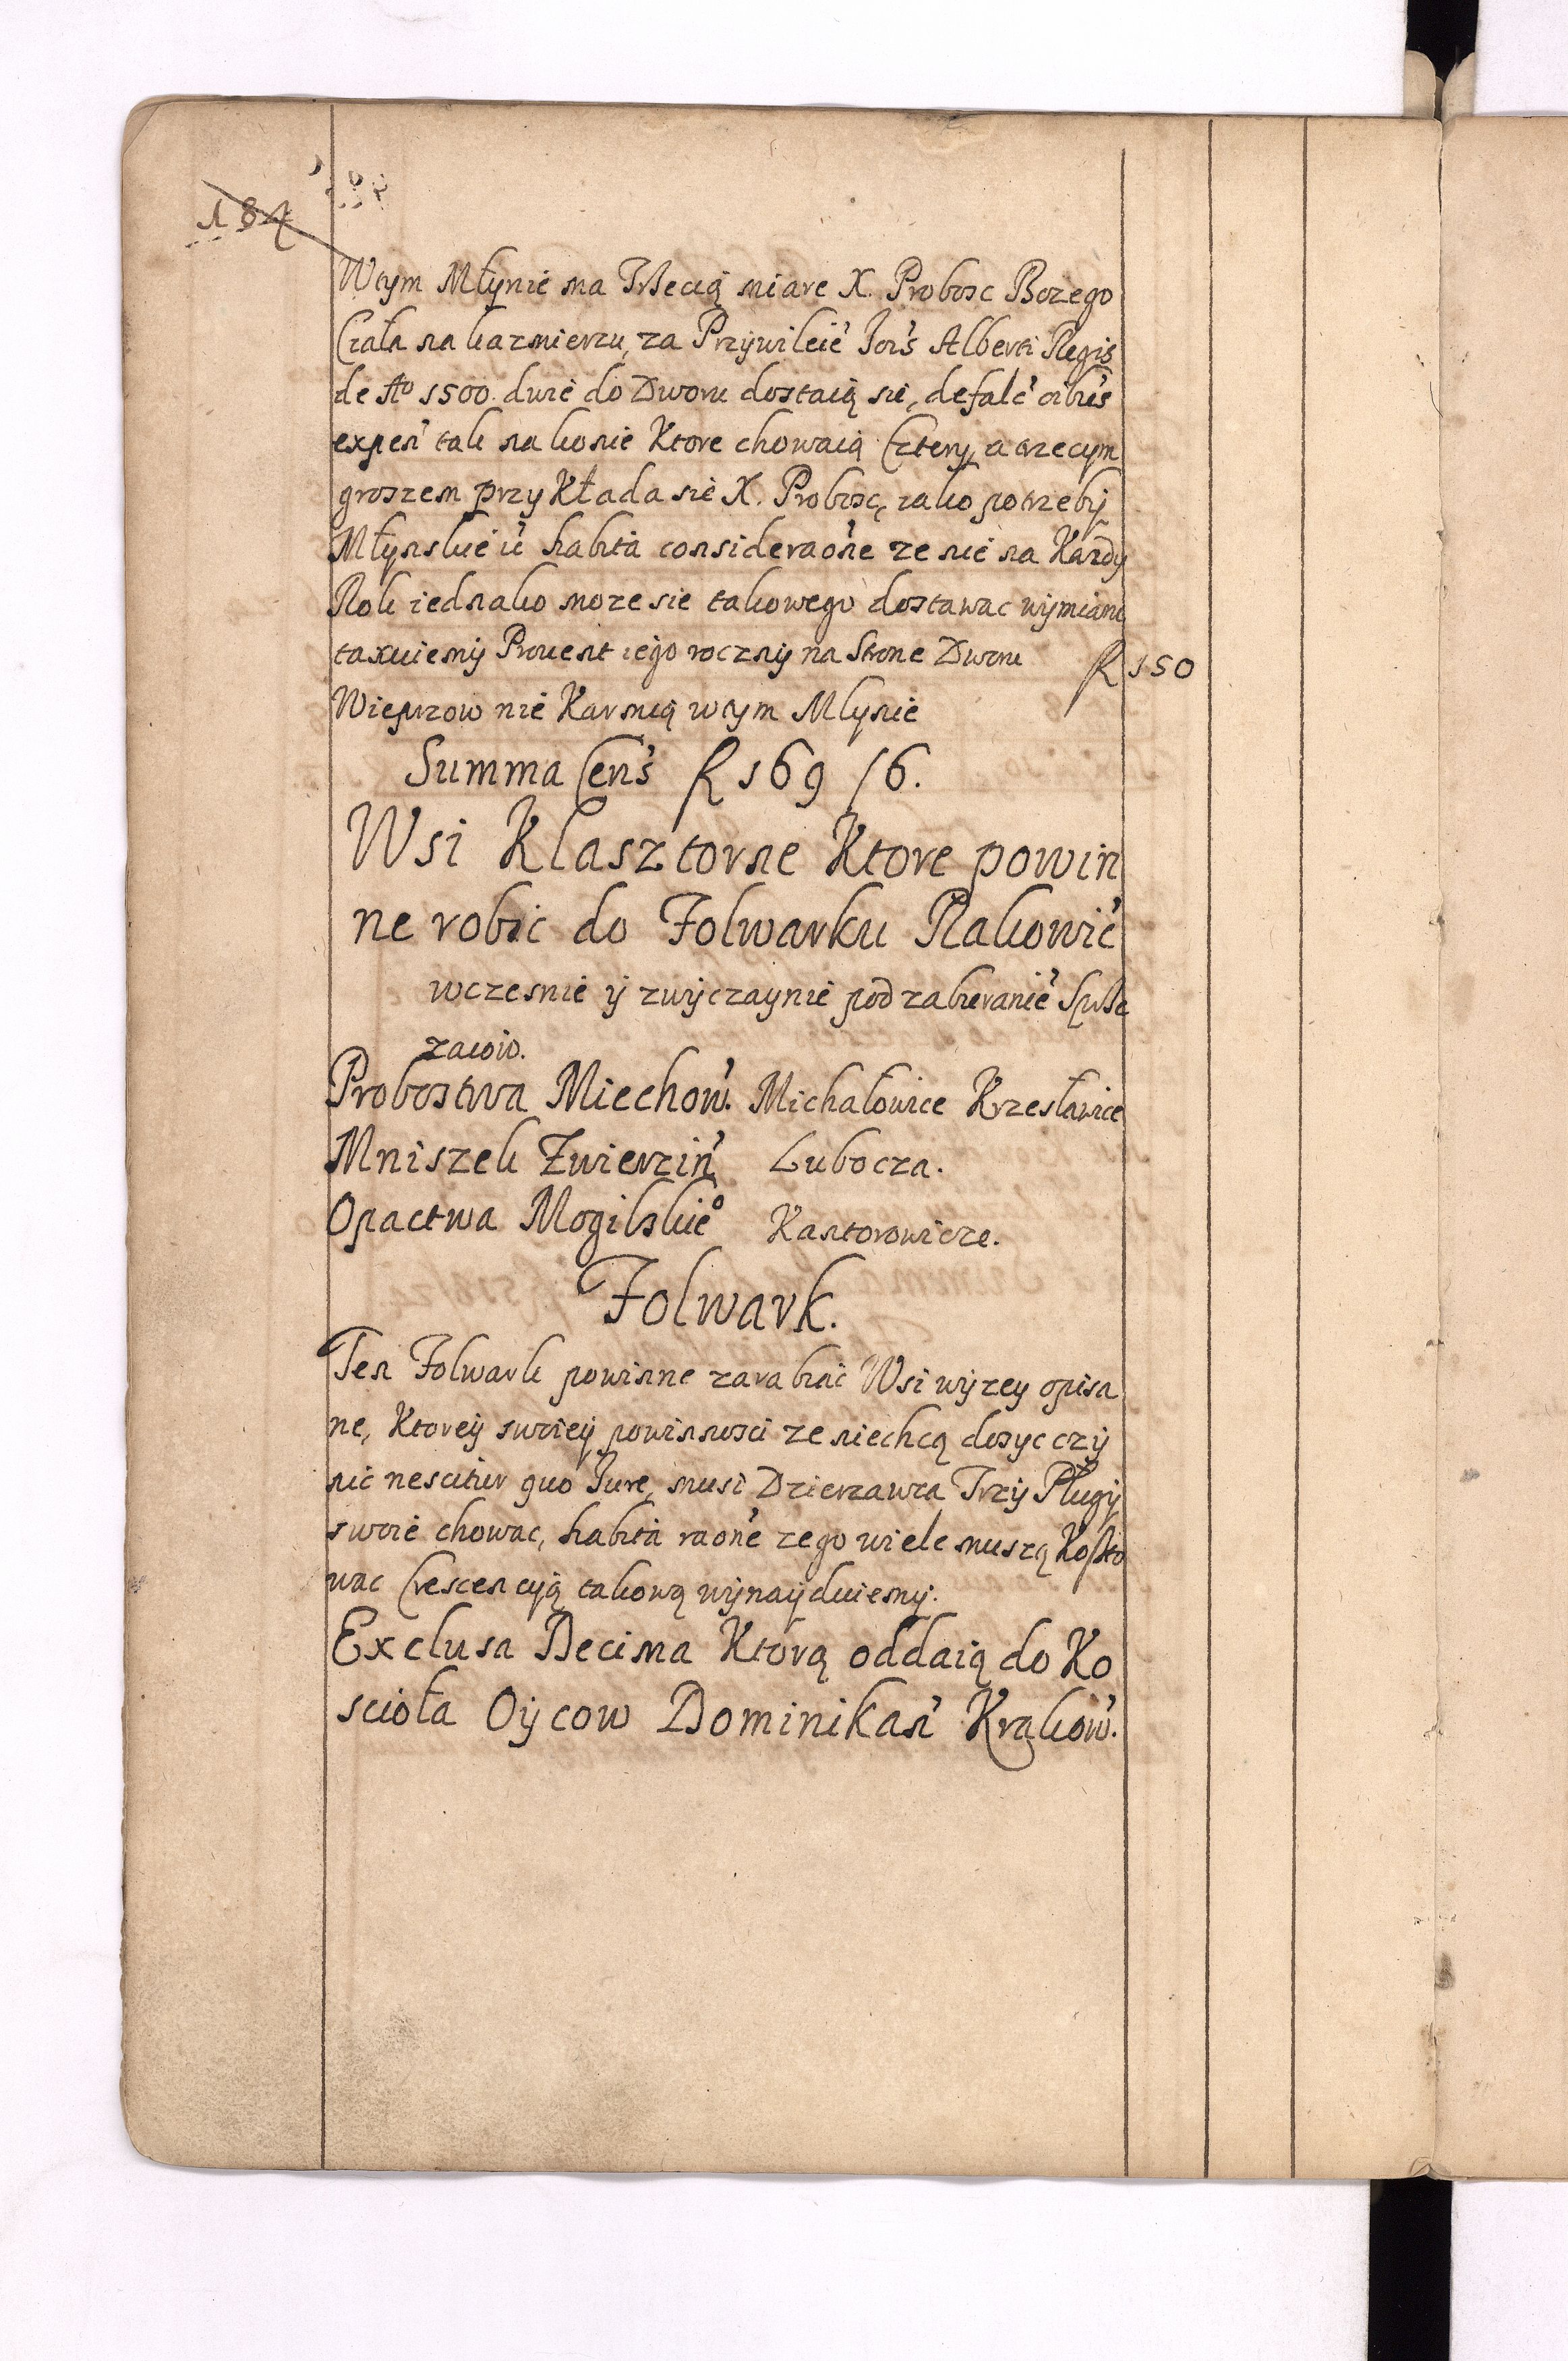 184
Wtym Młynie ma Trzecią miare X. Probosc Bozego
Ciała na kazmierzu, za Przywileie' Jois' Alberti Regis
de Aº 1500. dwie do Dworu dostaią sie, defalc' oibus'
expen' tak na konie Ktore chowaią Cztery, a trzecym
groszem przykłada sie X. Probosc, iako potrzeby
Młynskie ie' habita consideraone' ze nie na Kazdy
Rok iednako moze sie takowego dostawac wymiaru
taxuiemy Prouent iego roczny na Strone Dworu f 150
Wieprzow nie Karmią wtym Mlynie
Summa Cens' f 169 / 6.
Wsi Klasztorne Ktore powin
ne robic do Folwarku Rakowic'
wczesnie y zwyczaynie pod zabieranie'
Probostwa Miechow'. Michałowice Krzesławice
Mniszek Zwierzin' Lubocza.
Opactwa Mogilskieº Kantorowicze.
Folwark.
Ten Folwark powinne zarabiac Wsi wyzey opisa
ne, Ktorey swoiey powinnosci ze niechcą dosyc czy
nic nescitur quo Jure, musi Dzierzawca Trzy Pługy
swoie chowac, habita raone' zego wiele muszą Koszto
wac Crescencyią takową wynayduiemy.
Exclusa Decima Ktorą oddaią do Ko
scioła Oycow Dominikan' Krakow'.